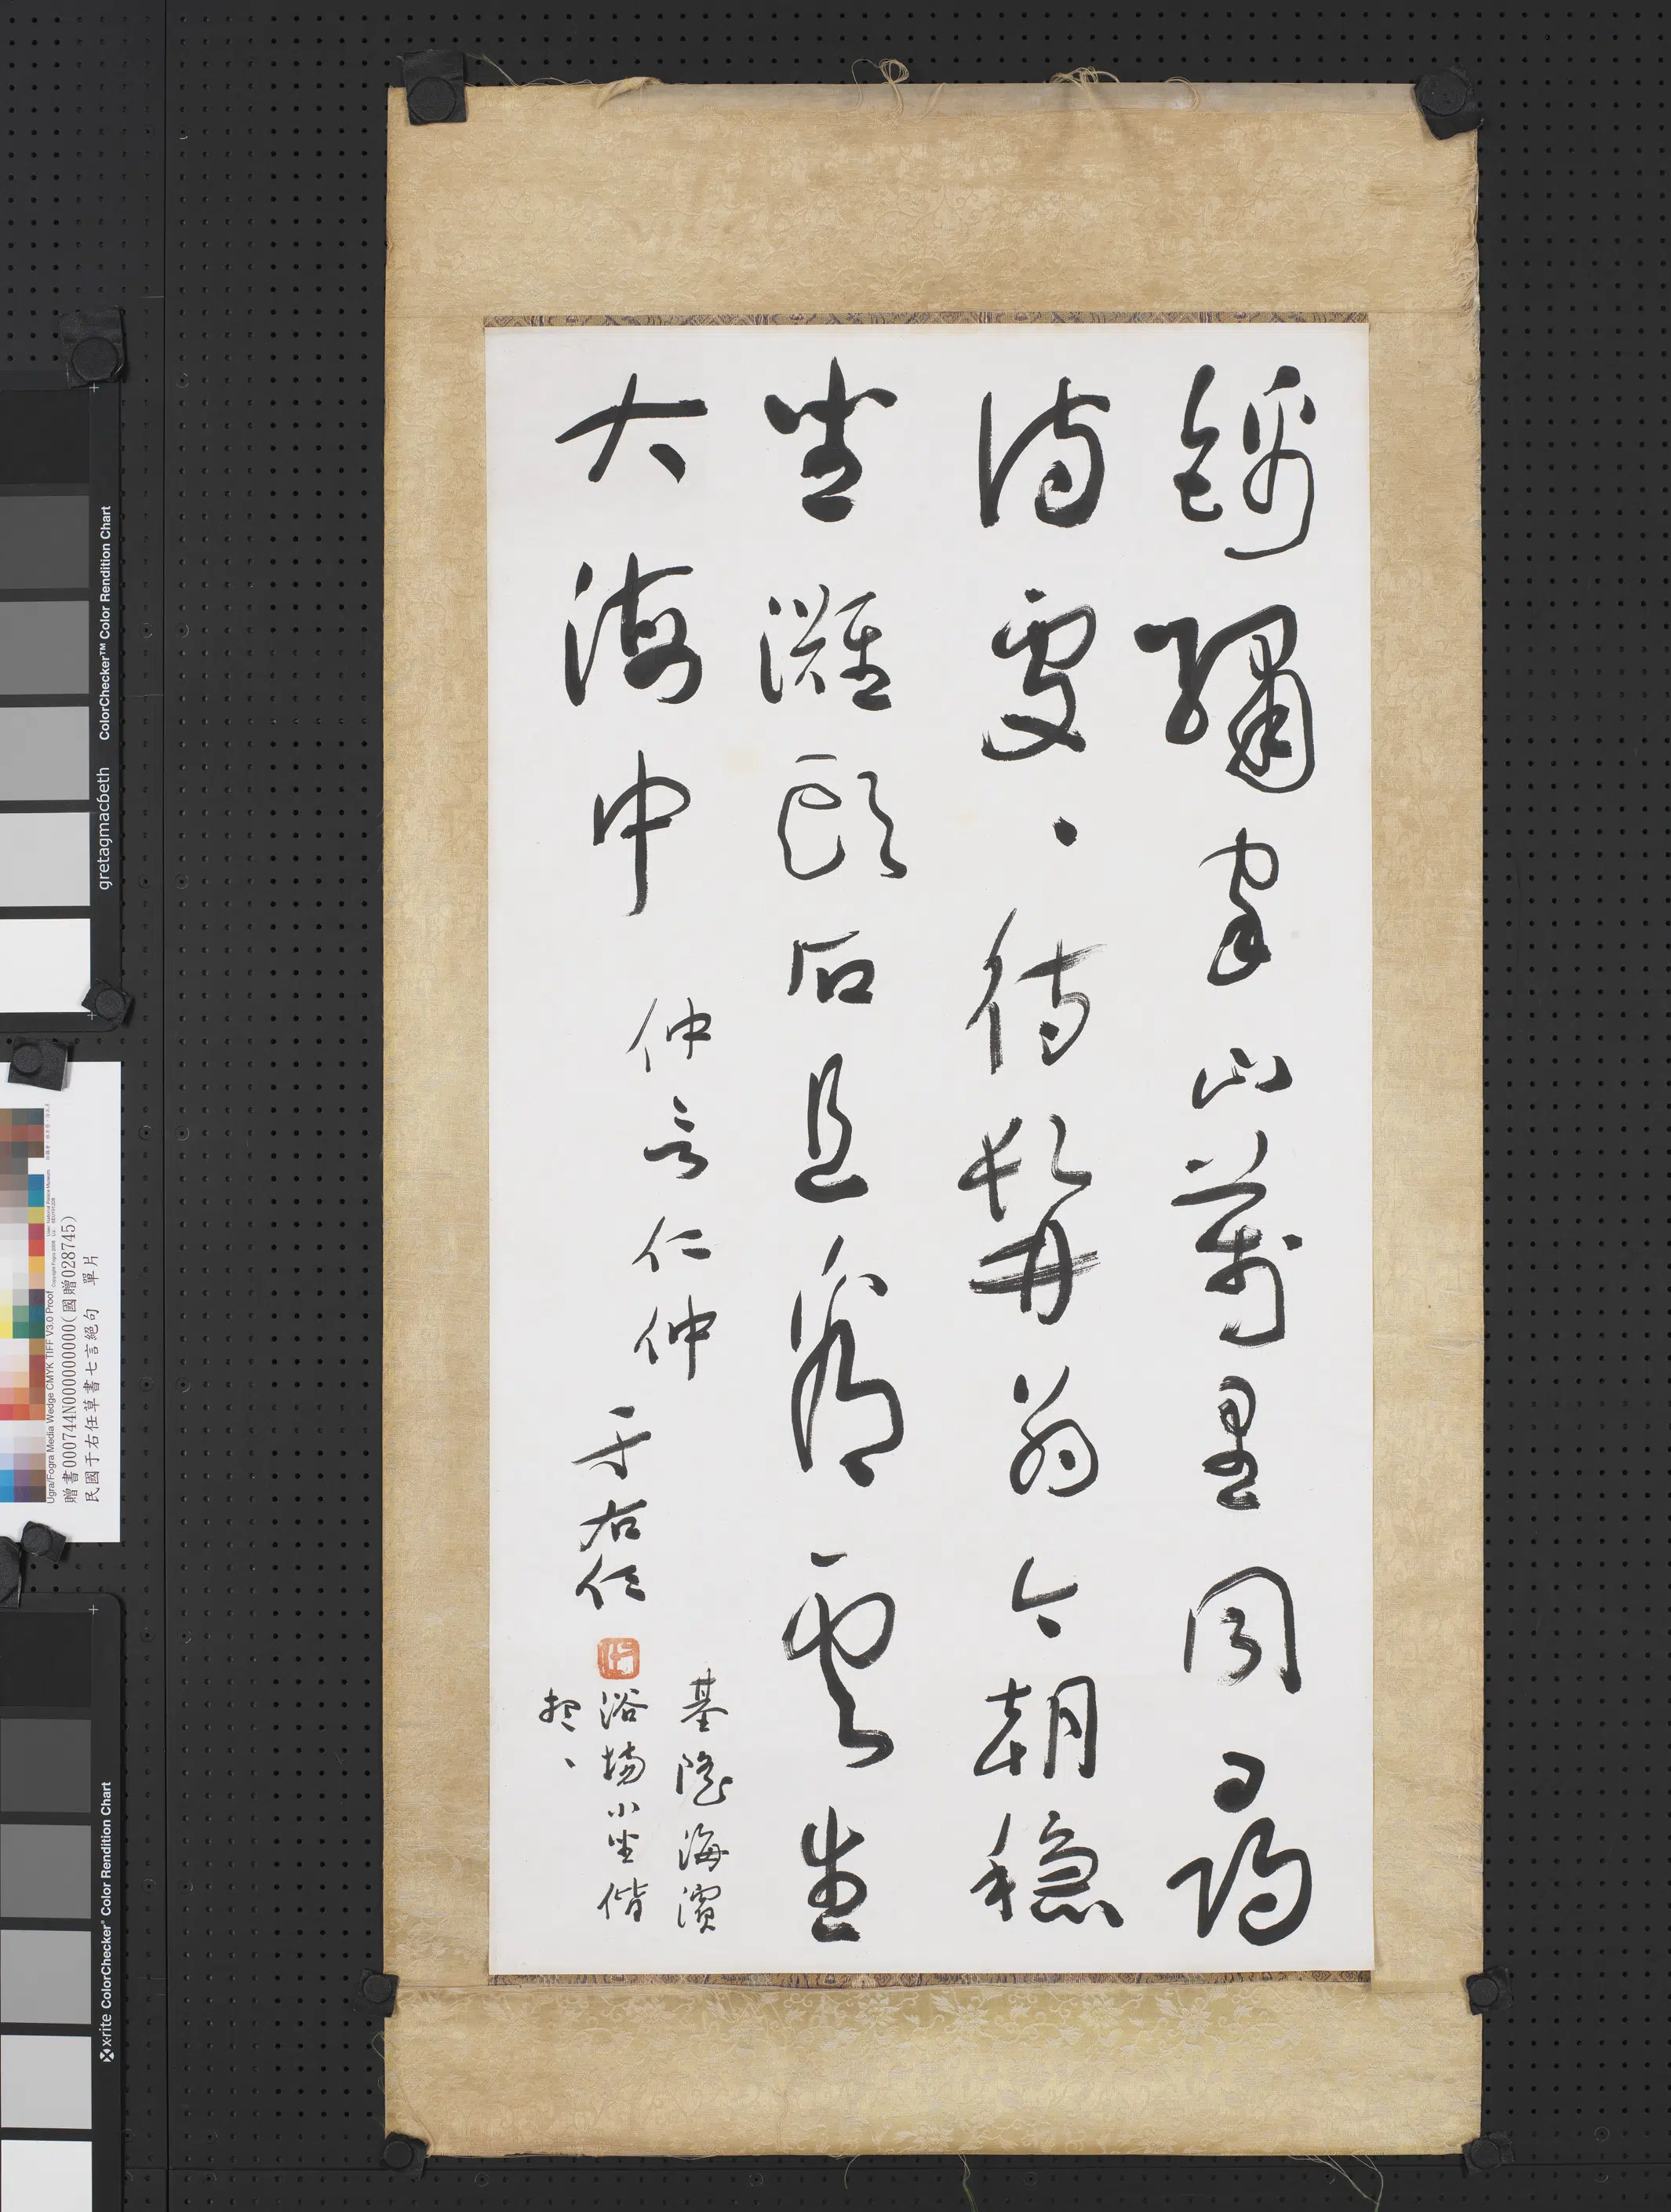 錦繡家山萬里同尋
詩處、待髯翁今朝穩
坐灘頭石且看雲生
大海中
仲言仁仲
于右任
基隆海濱
浴場小坐偕
想、
gretagmacbeth ColorChecker™ Color Rendition Chart
Ugra/Fogra Media Wedge CMYK TIFF V3.0 Proof
贈書000744N000000000(國贈028745)
民國于右任草書七言絕句 單片
x-rite ColorChecker® Color Rendition Chart